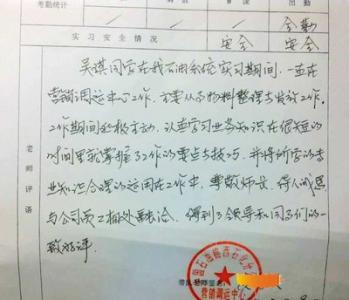 考勤统计 出勤
全勤
实习安全情况 安全 安全
吴祺同学在我石油系统实习期间,一直在
营销调运中心工作,主要从事物料整理与发放工作。
工作期间积极主动,认真学习业务知识在很短的
时间里就掌握了工作的要点与技巧,并将所学的专
业知识合理的运用在工作中,尊敬师长,待人诚恳
与公司员工相处融洽,得到了领导和同事们的一
致好评。
老师评语
营销调运中心